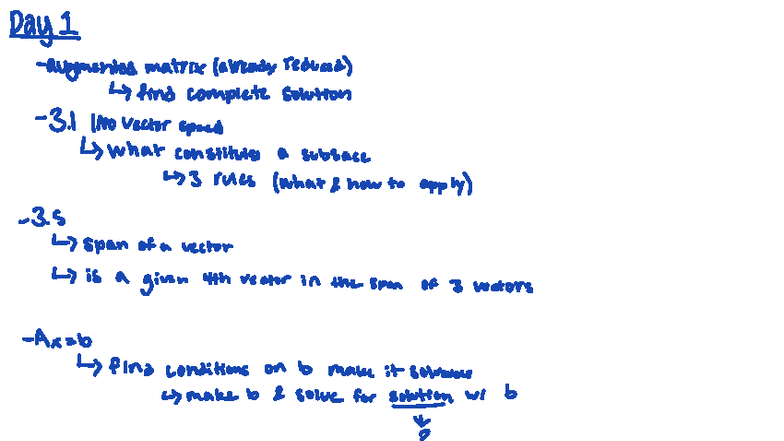 Day 1
- augmented matrix (already reduced)
↳ find complete solution
- 3.1 (no vector space)
↳ what constitutes a subsace
↳ 3 rules (what & how to apply)
- 3.5
↳ span of a vector
↳ is a given 4th vector in the span of 3 vectors
- Ax=b
↳ find conditions on b make it
↳ make b & solve for solution w/ b
↓